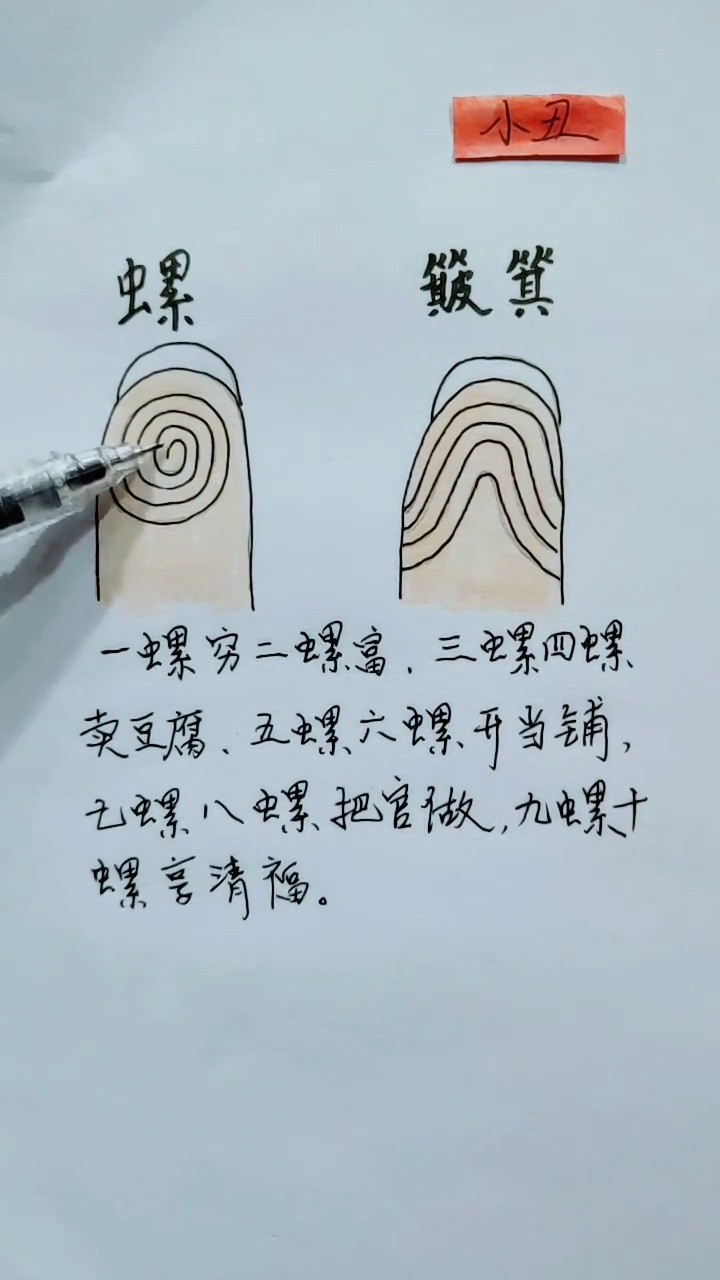 小丑
螺 簸箕
一螺穷二螺富、三螺四螺
卖豆腐、五螺六螺开当铺，
七螺八螺把官做，九螺十
螺享清福。